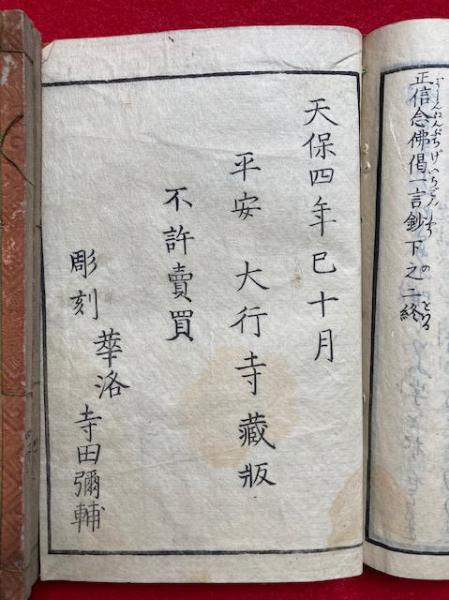 正信念佛偈一言鈔下之二終
天保四年巳十月
平安 大行寺藏版
不許賣買
彫刻 華洛 寺田彌輔